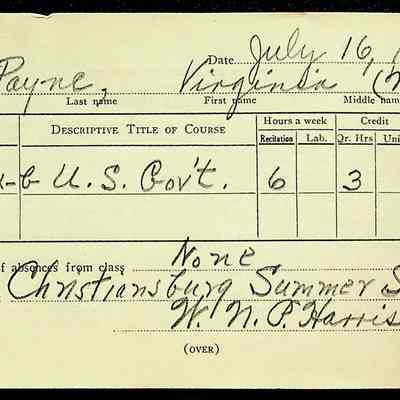 Date July 16, 1
Payne, Virginia (M
Last name First name Middle name
DESCRIPTIVE TITLE OF COURSE Hours a week Credit
Recitation Lab. Qr. Hrs Uni
-b U. S. Gov't. 6 3
of absences from class None
Christiansburg Summer S
W. N. P. Harris
(OVER)